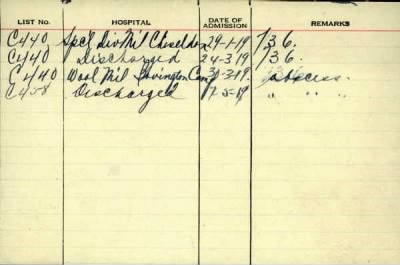 LIST No. HOSPITAL DATE OF ADMISSION REMARKS
C440 Spcl Div Mil Chiseldon 29-1-19 736.
C440 Discharged 24-3-19 736.
C440 Wool Mil Bovington Camp 30-3-19. abscess.
C458 Discharged 17-5-19 " " "